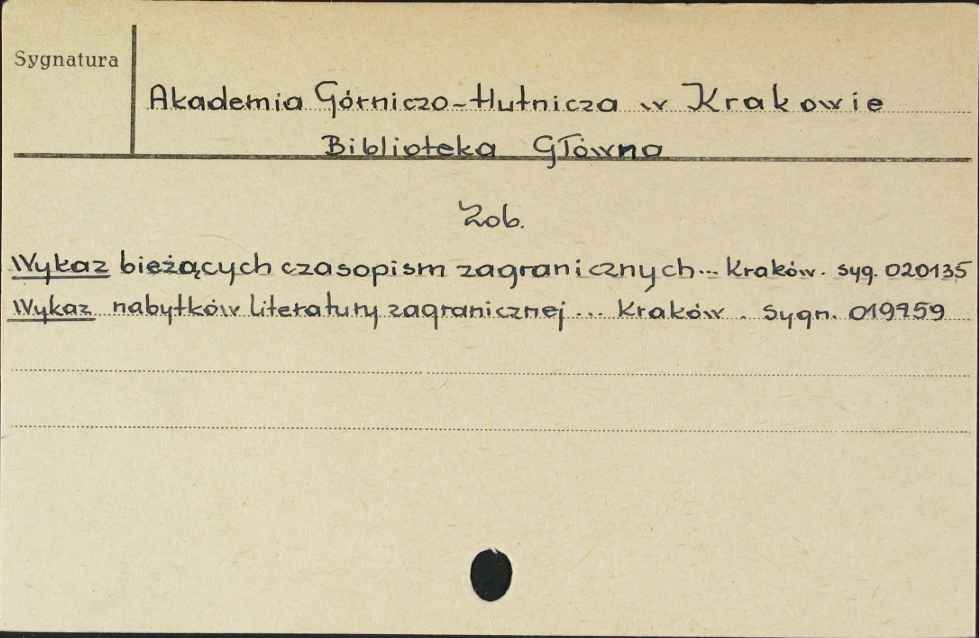 Sygnatura
Akademia Górniczo-Hutnicza w Krakowie
Biblioteka Główna
Zob.
Wykaz bieżących czasopism zagranicznych... Kraków. syg. 020135
Wykaz nabytków literatury zagranicznej... Kraków. Sygn. 019959